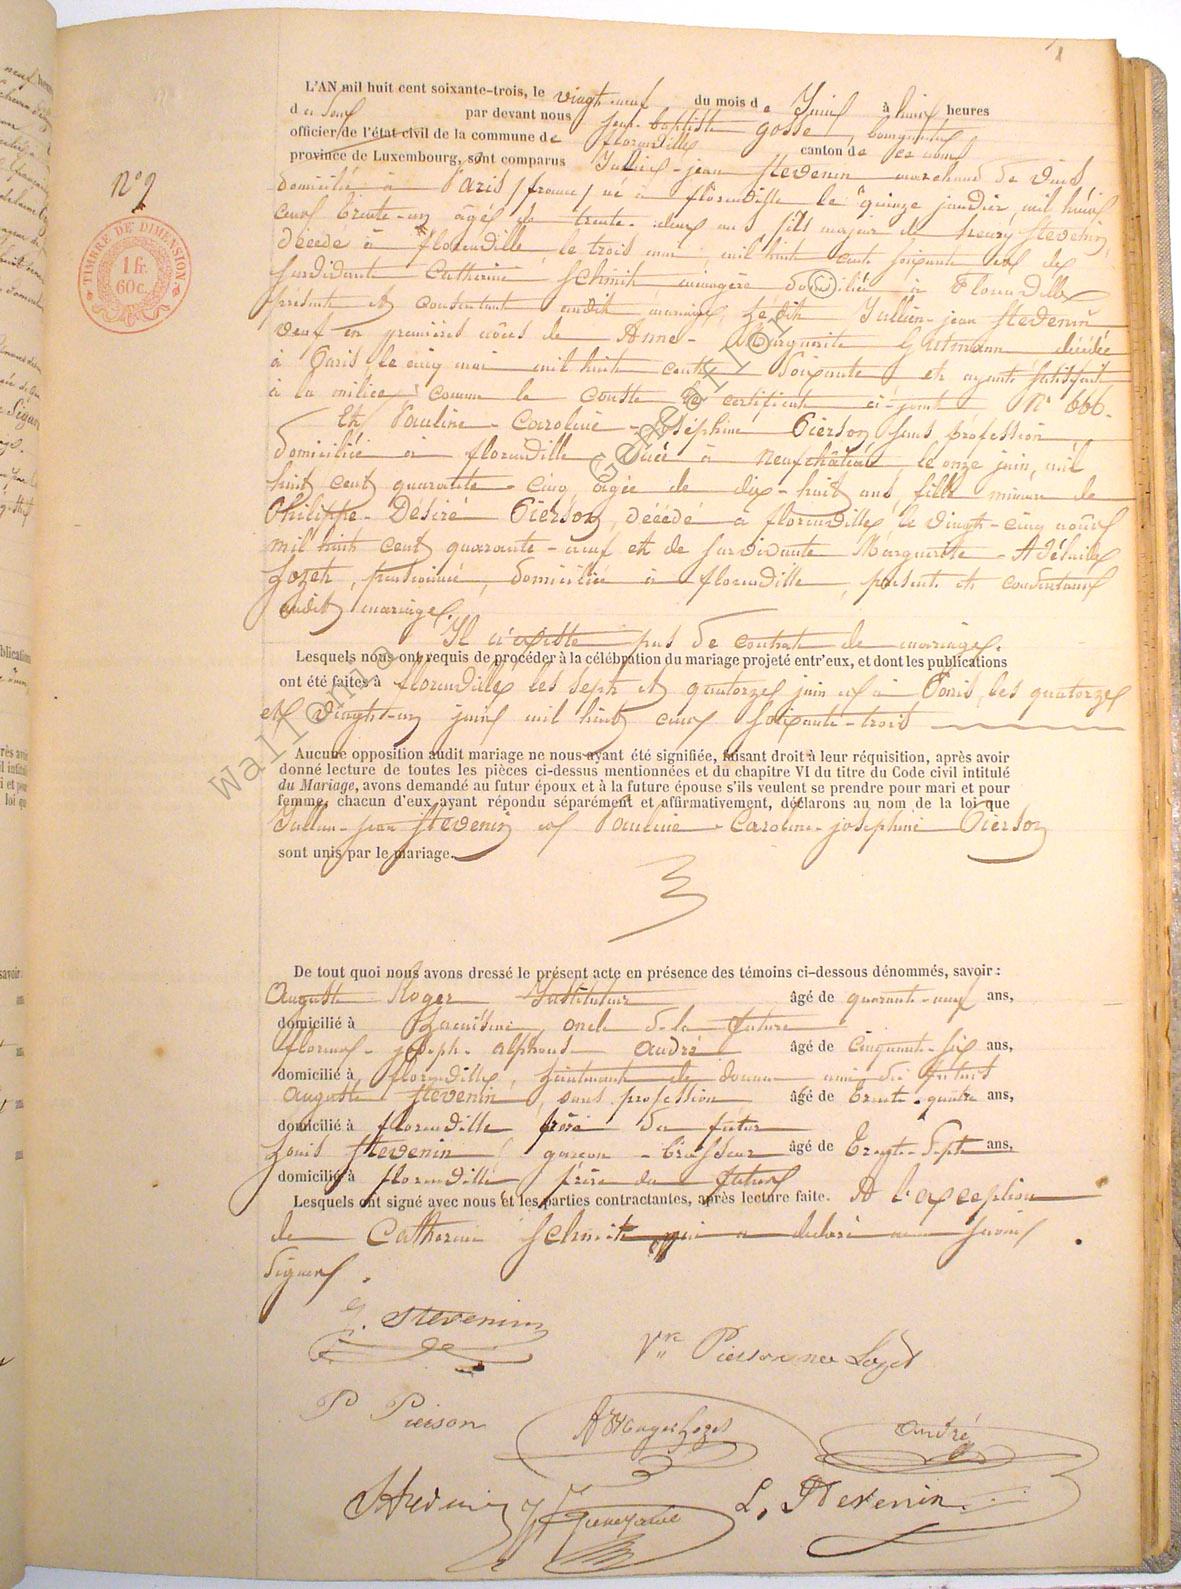 1
N° 9
TIMBRE DE DIMENSION
1 fr.
60 c.
L'AN mil huit cent soixante-trois, le vingt-neuf du mois de Juin à huit heures
du soir par devant nous Jean-Baptiste Gosse, bourgmestre
officier de l'état civil de la commune de florenville canton de
province de Luxembourg, sont comparus Jullien-jean Stevenin marchand de vins
domicilié à Paris / france / né à florenville le quinze janvier mil huit
cent trente-un âgé de trente-deux ans fils majeur de henry Stevenin,
décédé à florenville le trois mai mil huit cent soixante et de
survivante Catherine Schmit ménagère domiciliée à Florenville
présente et consentant audit mariage, ledit Jullien-jean Stevenin
veuf en premières nôces de Anne-Marguerite Gutmann décédée
à Paris le cinq mai mil huit cent soixante et ayant satisfait
à la milice comme le conste le certificat ci-joint N° 666.
Et Pauline-Caroline-Joséphine Pierson sans profession
domiciliée à florenville née à Neufchâteau, le onze juin mil
huit cent quarante-cinq, âgée de dix-huit ans fille mineure de
Philippe-Désiré Pierson, décédé à florenville le vingt-cinq août
mil huit cent quarante-neuf et de survivante Marguerite-Adélaïde
Lozet, pensionnée, domiciliée à florenville, présente et consentant
audit mariage.
Il n'existe pas de contrat de mariage.
Lesquels nous ont requis de procéder à la célébration du mariage projeté entr'eux, et dont les publications
ont été faites à florenville les sept et quatorze juin et à Paris, les quatorze
et vingt-un juin mil huit cent soixante-trois
Aucune opposition audit mariage ne nous ayant été signifiée, faisant droit à leur réquisition, après avoir
donné lecture de toutes les pièces ci-dessus mentionnées et du chapitre VI du titre du Code civil intitulé
du Mariage, avons demandé au futur époux et à la future épouse s'ils veulent se prendre pour mari et pour
femme, chacun d'eux ayant répondu séparément et affirmativement, déclarons au nom de la loi que
Jullien-Jean Stevenin et Pauline-Caroline-joséphine Pierson
sont unis par le mariage.
De tout quoi nous avons dressé le présent acte en présence des témoins ci-dessous dénommés, savoir :
Auguste Roger Instituteur âgé de quarante-neuf ans,
domicilié à oncle de la future
florent-joseph-alphonse André âgé de cinquante-six ans,
domicilié à florenville, Lieutenant de douane ami du futur
Auguste Stevenin, sans profession âgé de trente-quatre ans,
domicilié à florenville frère du futur
Louis Stevenin garçon-brasseur âgé de trente-sept ans,
domicilié à florenville frère du futur
Lesquels ont signé avec nous et les parties contractantes, après lecture faite. A l'exception
de Catherine Schmit qui a déclaré ne savoir
signer.
J. Stevenin
Vve Pierson née Lozet
P Pierson
A Roger Lozet
André
Stevenin
L. Stevenin
wallonie © geneanet.org